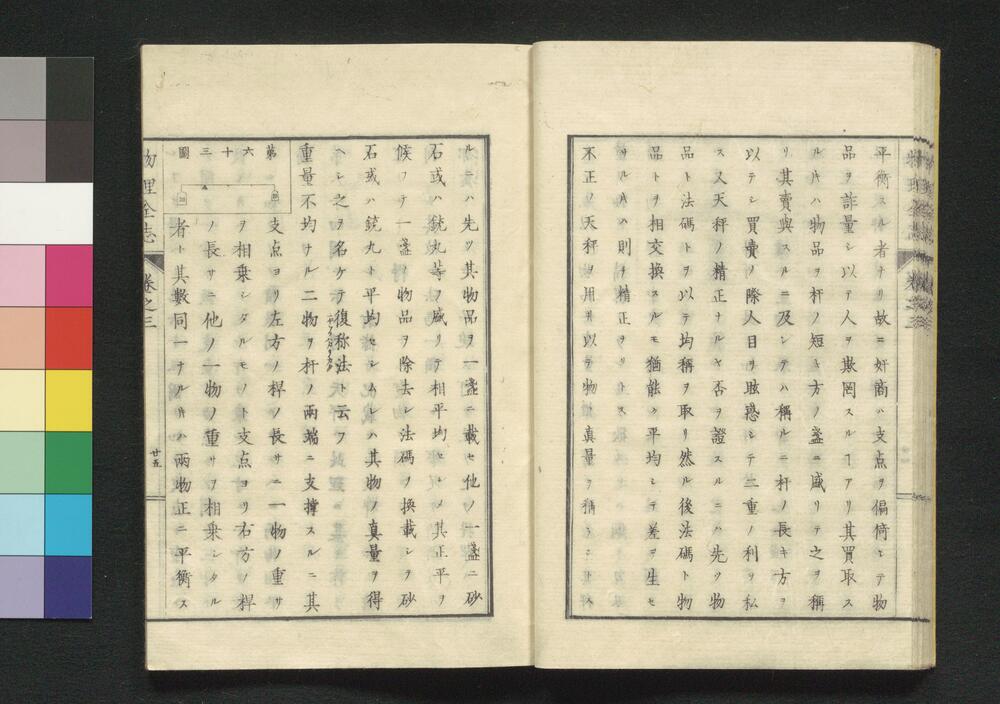 平衡スル者ナリ故ニ奸商ハ支点ヲ偏倚シテ物
品ヲ詐量シ以テ人ヲ欺罔スルヿアリ其買取ス
ルキハ物品ヲ杆ノ短キ方ノ盞ニ盛リテ之ヲ稱
リ其賣與スルニ及ンテハ稱ルニ杆ノ長キ方ヲ
以テシ買賣ノ際人目ヲ眩惑シテ二重ノ利ヲ私
ス又天秤ノ精正ナルヤ否ヲ證スルニハ先ツ物
品ト法碼トヲ以テ均稱ヲ取リ然ル後法碼ト物
品トヲ相交換スルモ猶能ク平均シテ差ヲ生セ
サルハ則チ精正ナリトス
不正ノ天秤ヲ用井以テ物ノ真量ヲ稱ラントス
ルニハ先ツ其物品ヲ一盞ニ載セ他ノ一盞ニ砂
石或ハ銃丸等ヲ盛リテ相平均セシメ其正平ヲ
候フテ一盞ノ物品ヲ除去シ法碼ヲ換載シテ砂
石或ハ銃丸ト平均セシムレハ其物ノ真量ヲ得
ヘシ之ヲ名ケテ復称法ト云フ
重量不均ナル二物ヲ杆ノ兩端ニ支撐スルニ其
支点ヨリ左方ノ桿ノ長サニ一物ノ重サ
ヲ相乗シタルモノト支点ヨリ右方ノ桿
ノ長サニ他ノ一物ノ重サヲ相乗シタル
者ト其數同一ナルキハ兩物正ニ平衡ス
第六十三圖
物理全志 卷之三
廿五